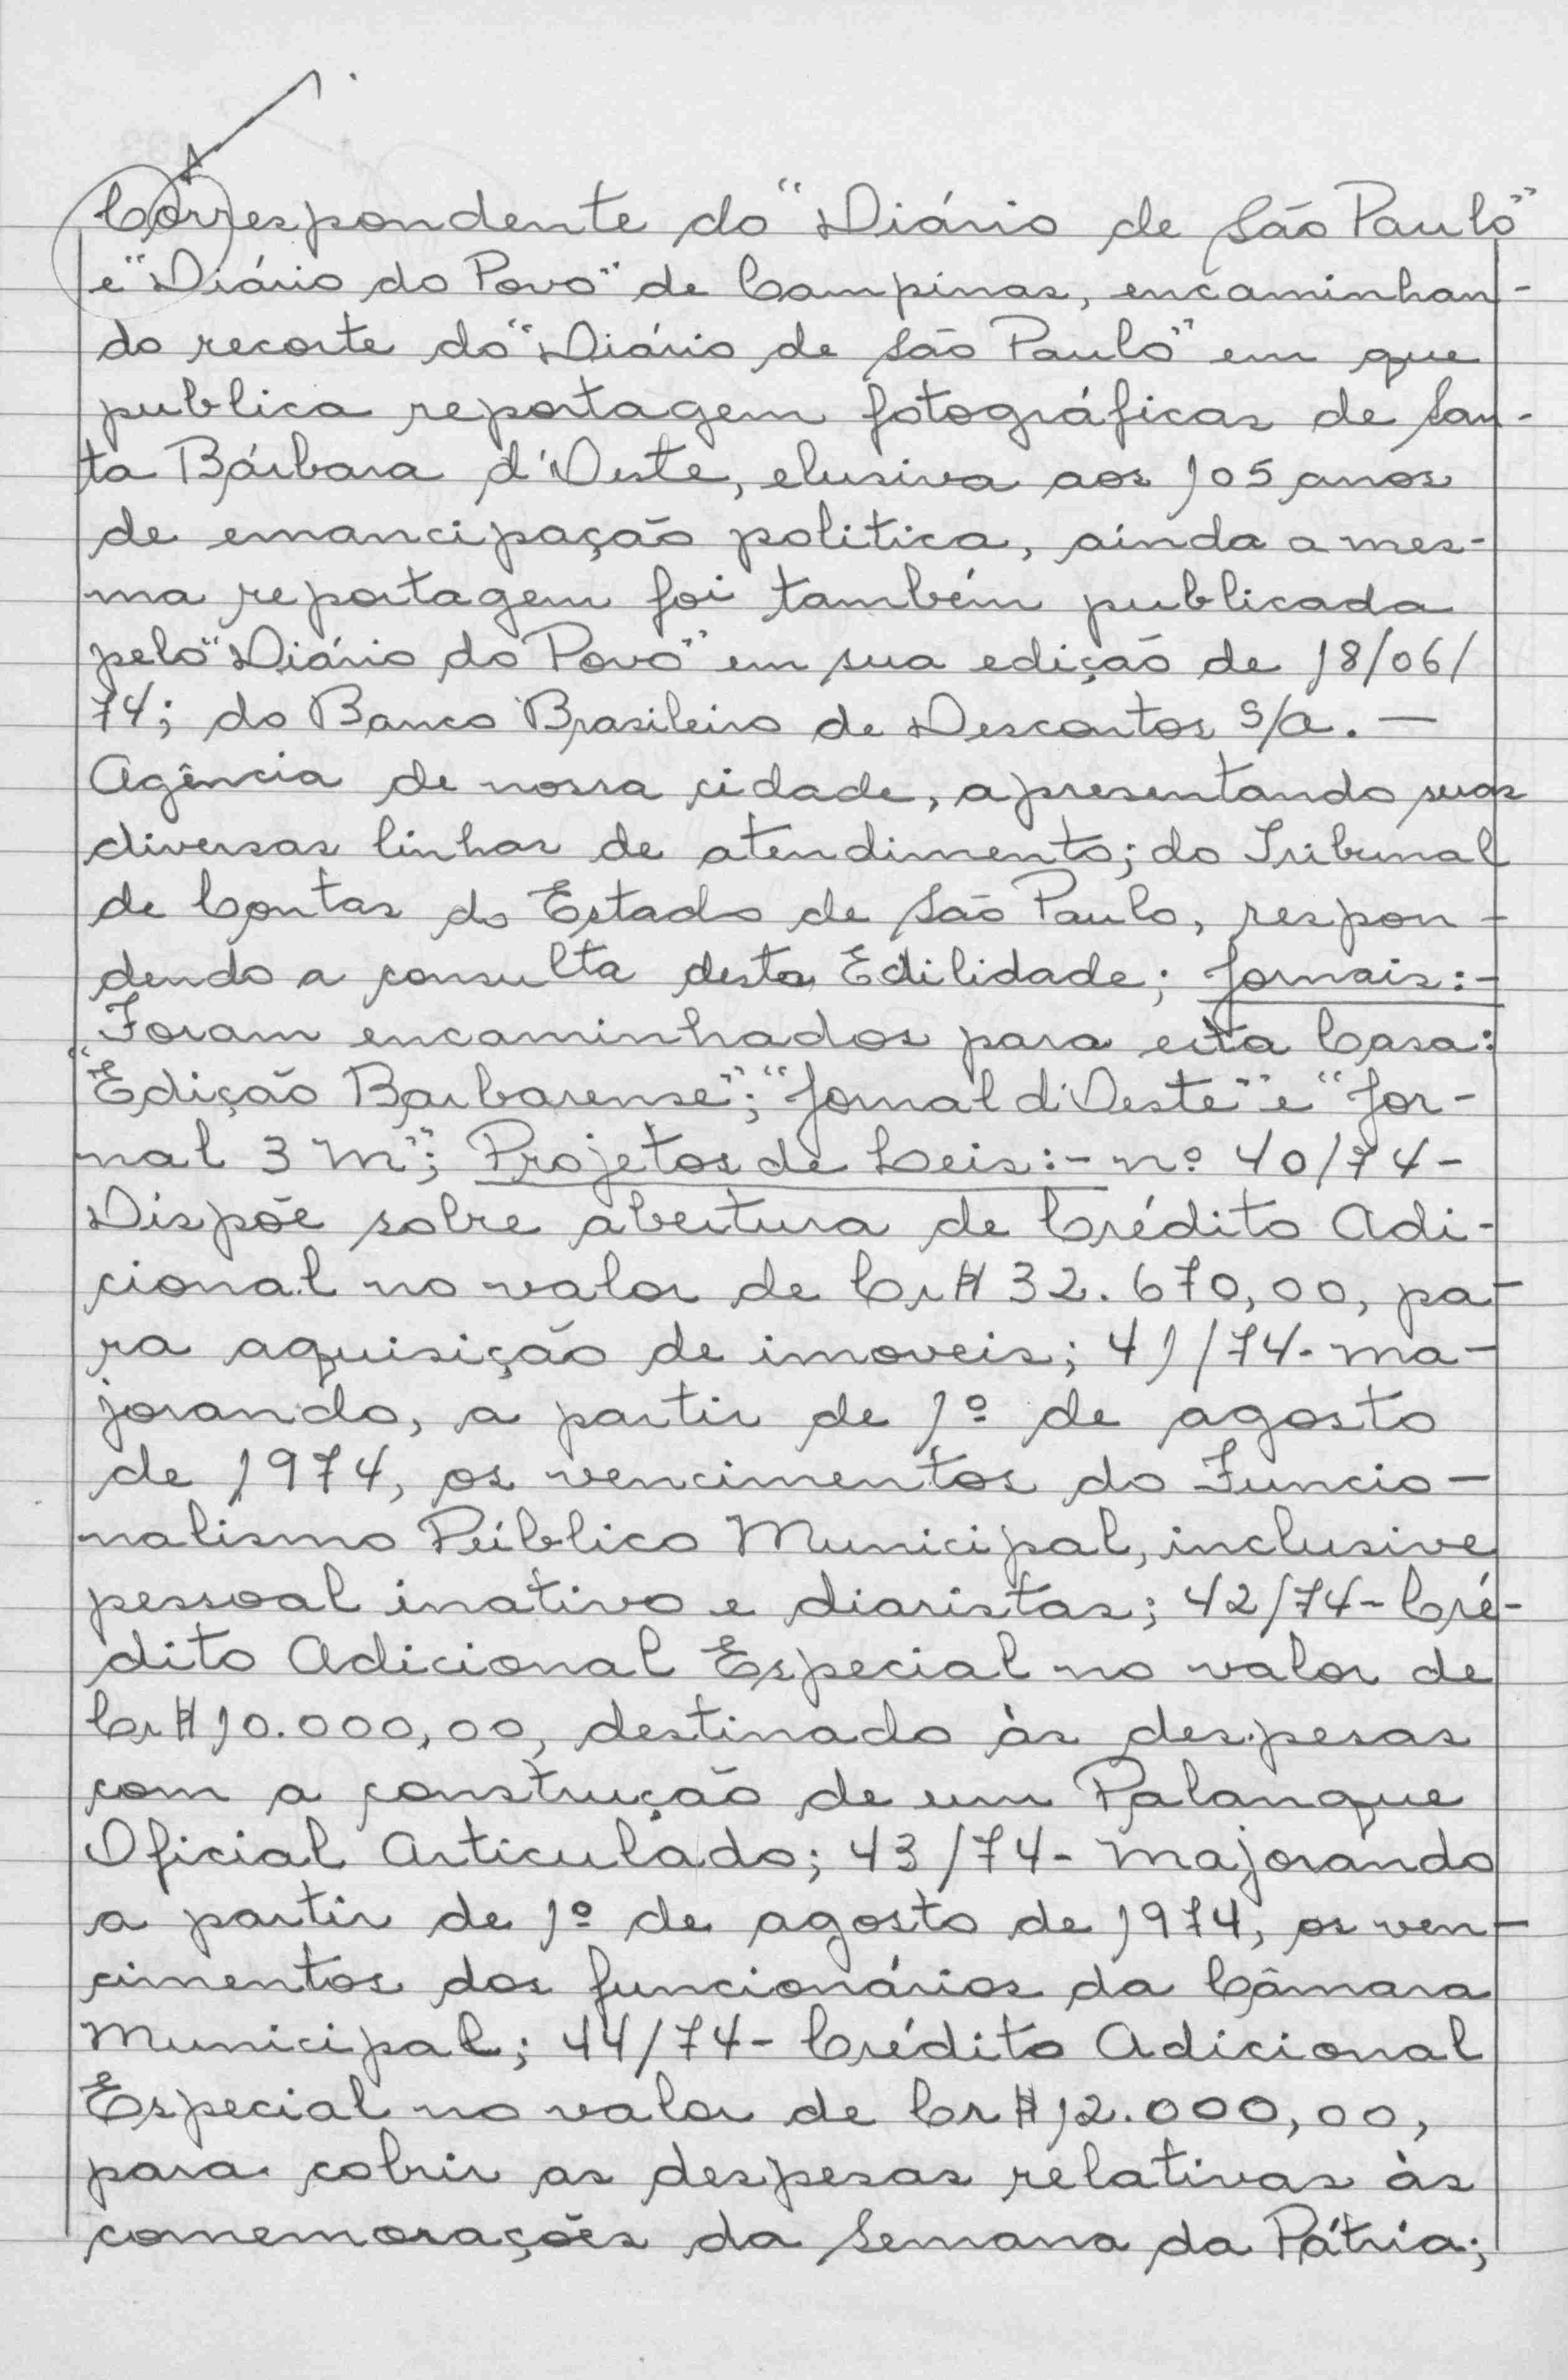 Correspondente do "Diário de São Paulo"
e "Diário do Povo" de Campinas, encaminhan-
do recorte do "Diário de São Paulo" em que
publica reportagem fotográficas de San-
ta Bárbara d'Oeste, elusiva aos 105 anos
de emancipação politica, ainda a mes-
ma reportagem foi também publicada
pelo "Diário do Povo" em sua edição de 18/06/
74; do Banco Brasileiro de Descontos S/A. —
Agência de nossa cidade, apresentando suas
diversas linhas de atendimento; do Tribunal
de Contas do Estado de São Paulo, respon-
dendo a consulta desta Edilidade; Jornais:-
Foram encaminhados para esta Casa:
"Edição Barbarense"; "Jornal d'Oeste" e "Jor-
nal 3 M"; Projetos de Leis:- nº 40/74-
Dispõe sobre abertura de Crédito Adi-
cional no valor de Cr$ 32.670,00, pa-
ra aquisição de imoveis; 41/74- ma-
jorando, a partir de 1º de agosto
de 1974, os vencimentos do Funcio-
nalismo Público Municipal, inclusive
pessoal inativo e diaristas; 42/74- Cré-
dito Adicional Especial no valor de
Cr$ 10.000,00, destinado às despesas
com a construção de um Palanque
Oficial Articulado; 43/74- Majorando
a partir de 1º de agosto de 1974, os ven-
cimentos dos funcionários da Câmara
Municipal; 44/74- Crédito Adicional
Especial no valor de Cr$ 12.000,00,
para cobrir as despesas relativas às
comemorações da Semana da Pátria;